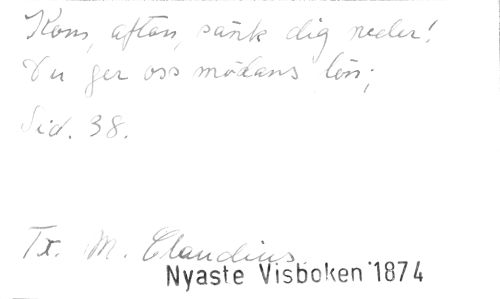 Kom, afton, sänk dig neder!
Du ger oss mödans lön;
Sid. 38.
Tx. M. Claudius.
Nyaste Visboken 1874